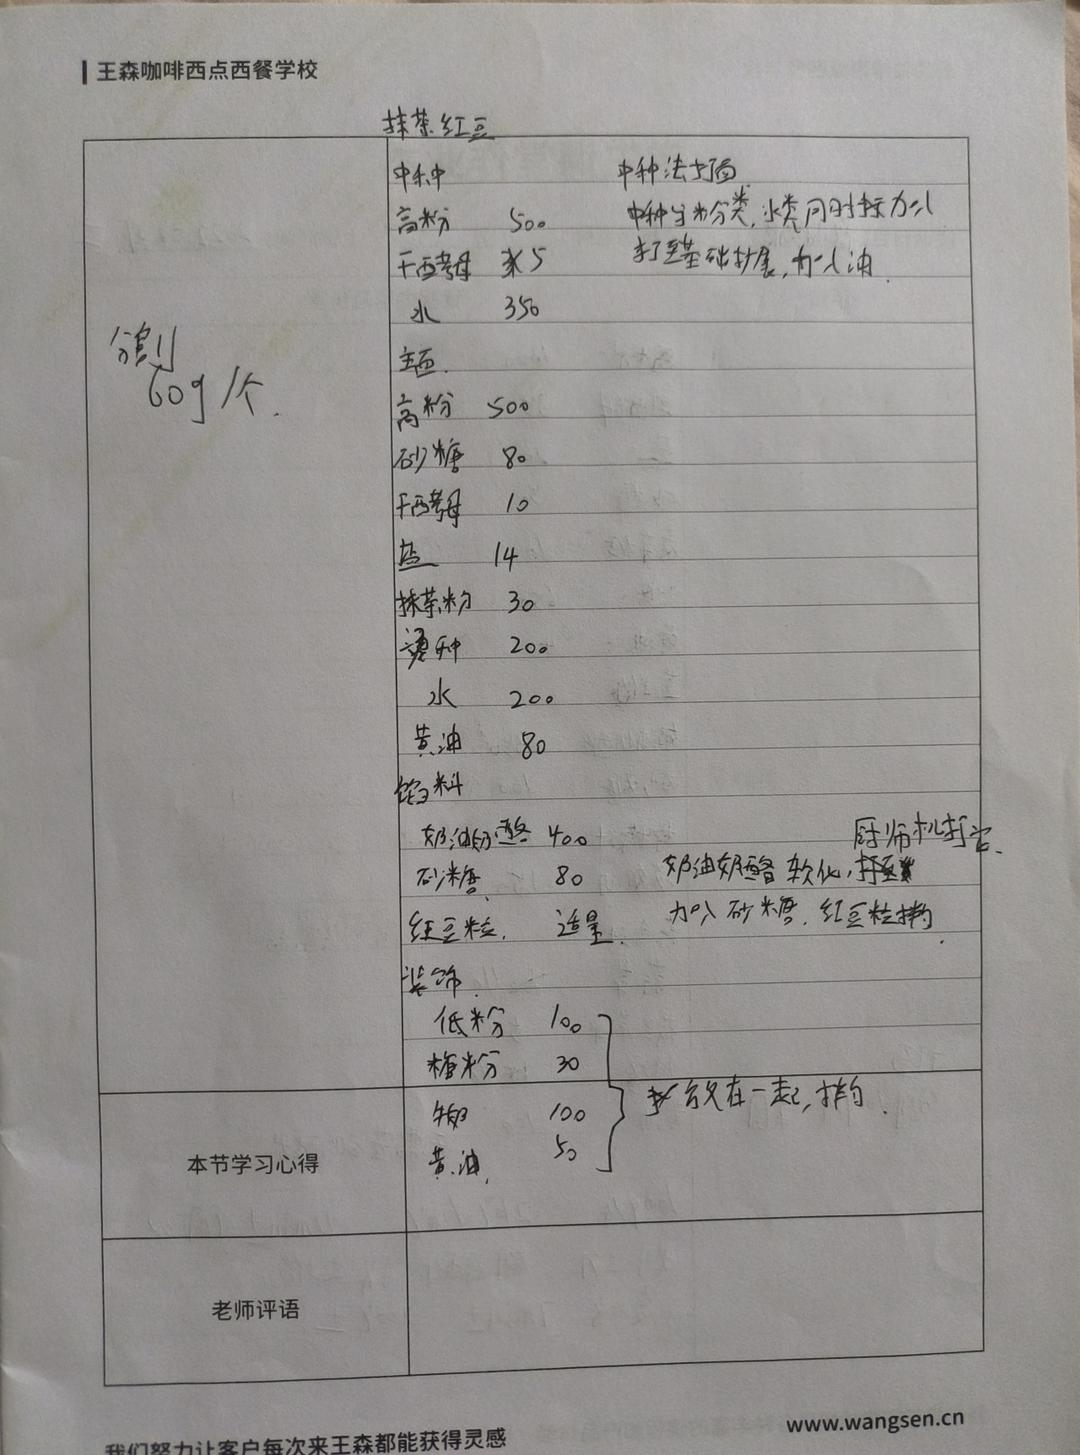 王森咖啡西点西餐学校
抹茶红豆
中种 中种法打面
高粉 500 中种与粉类,水类同时加入
干酵母 5 打至基础扩展,加入油
水 350
主面
高粉 500
砂糖 80
干酵母 10
盐 14
抹茶粉 30
烫种 200
水 200
黄油 80
馅料
奶油奶酪 400 厨师机打
砂糖 80 奶油奶酪软化,打至
红豆粒 适量 加入砂糖、红豆粒拌匀
装饰
低粉 100
糖粉 30
牛奶 100 放在一起,拌匀
黄油 50
分割
60g/个
本节学习心得
老师评语
www.wangsen.cn
我们努力让客户每次来王森都能获得灵感